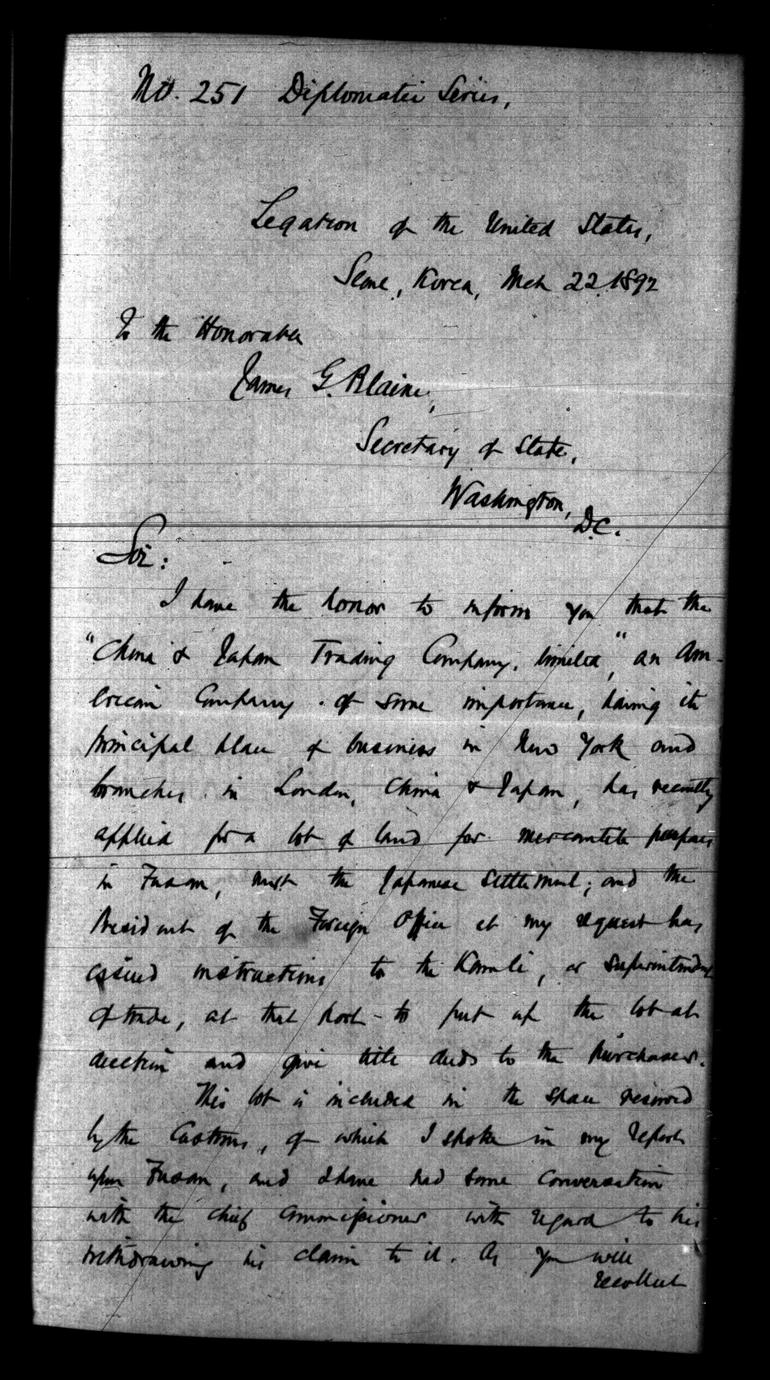 No. 251 Diplomatic Series.
Legation of the United States,
Seoul, Korea, Mch 22 1892
To the Honorable
James G. Blaine,
Secretary of State,
Washington,
D.C.
Sir:
I have the honor to inform you that the
"China & Japan Trading Company, limited," an Am-
erican Company of some importance, having its
principal place of business in New York and
branches in London, China & Japan, has recently
applied for a lot of land for mercantile purposes
in Fusan, near the Japanese Settlement; and the
President of the Foreign Office at my request has
issued instructions to the Kamli, or Superintendent
of trade, at that port to put up the lot at
auction and give title deeds to the purchaser.
This lot is included in the space reserved
by the Customs, of which I spoke in my report
upon Fusan, and I have had some conversation
with the Chief Commissioner with regard to his
withdrawing his claim to it. As you will
recollect